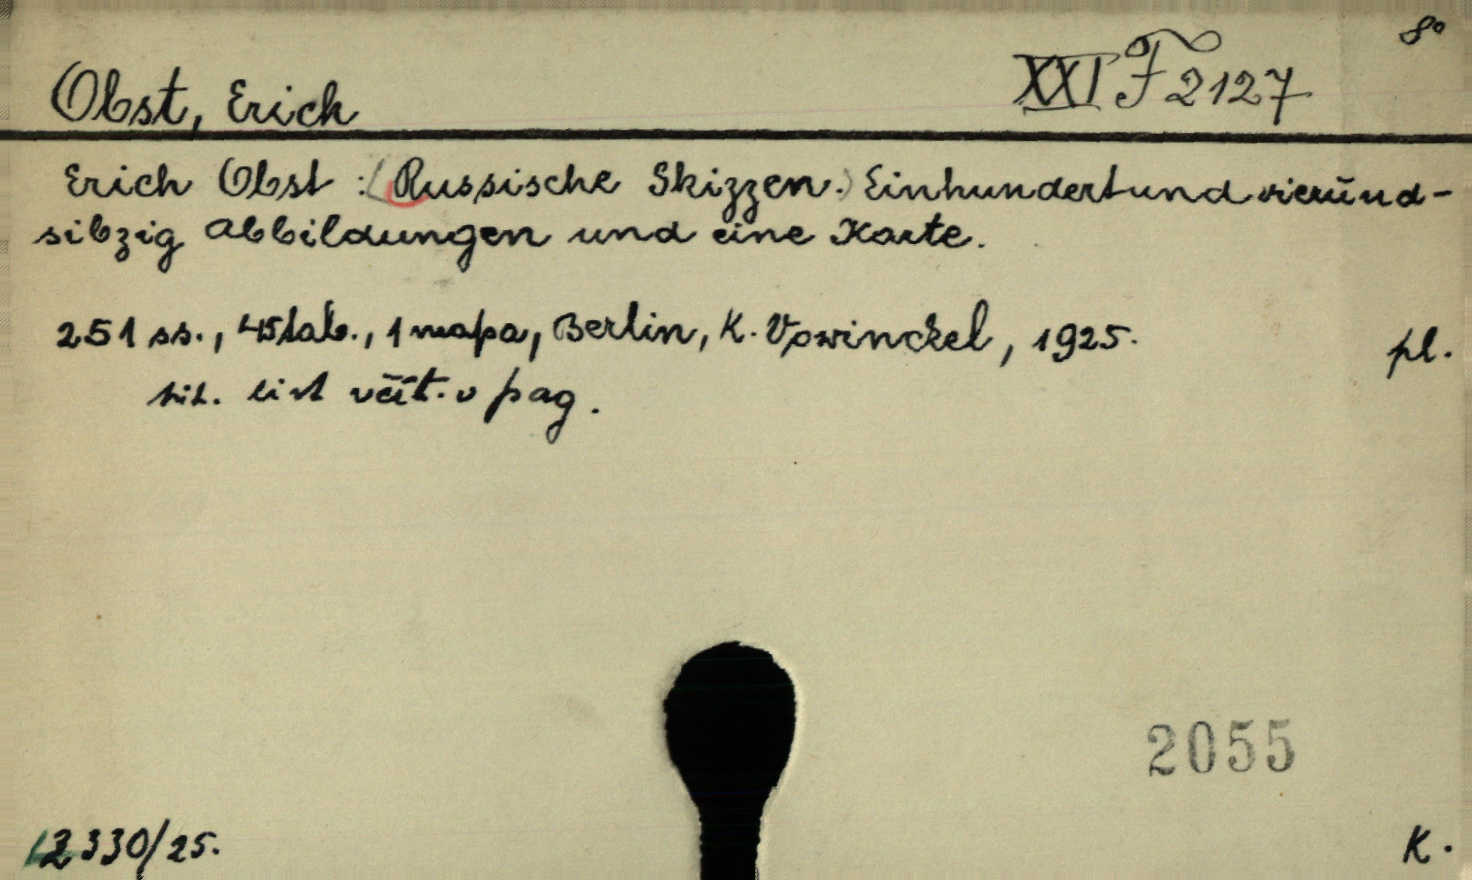 8°
Obst, Erich XXI F 2127
Erich Obst : (Russische Skizzen.) Einhundertundvierund-
sibzig Abbildungen und eine Karte.
251 ss., 45 tab., 1 mapa, Berlin, K. Vowinckel, 1925. pl.
tit. list včít. v pag.
2055
12330/25. K.